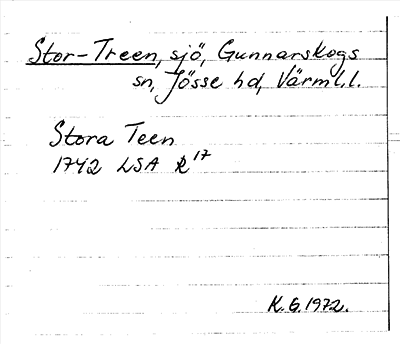 Stor-Treen, sjö, Gunnarskogs
sn, Jösse hd, Värml.l.
Stora Teen
1742 LSA R 17
K.G.1972.